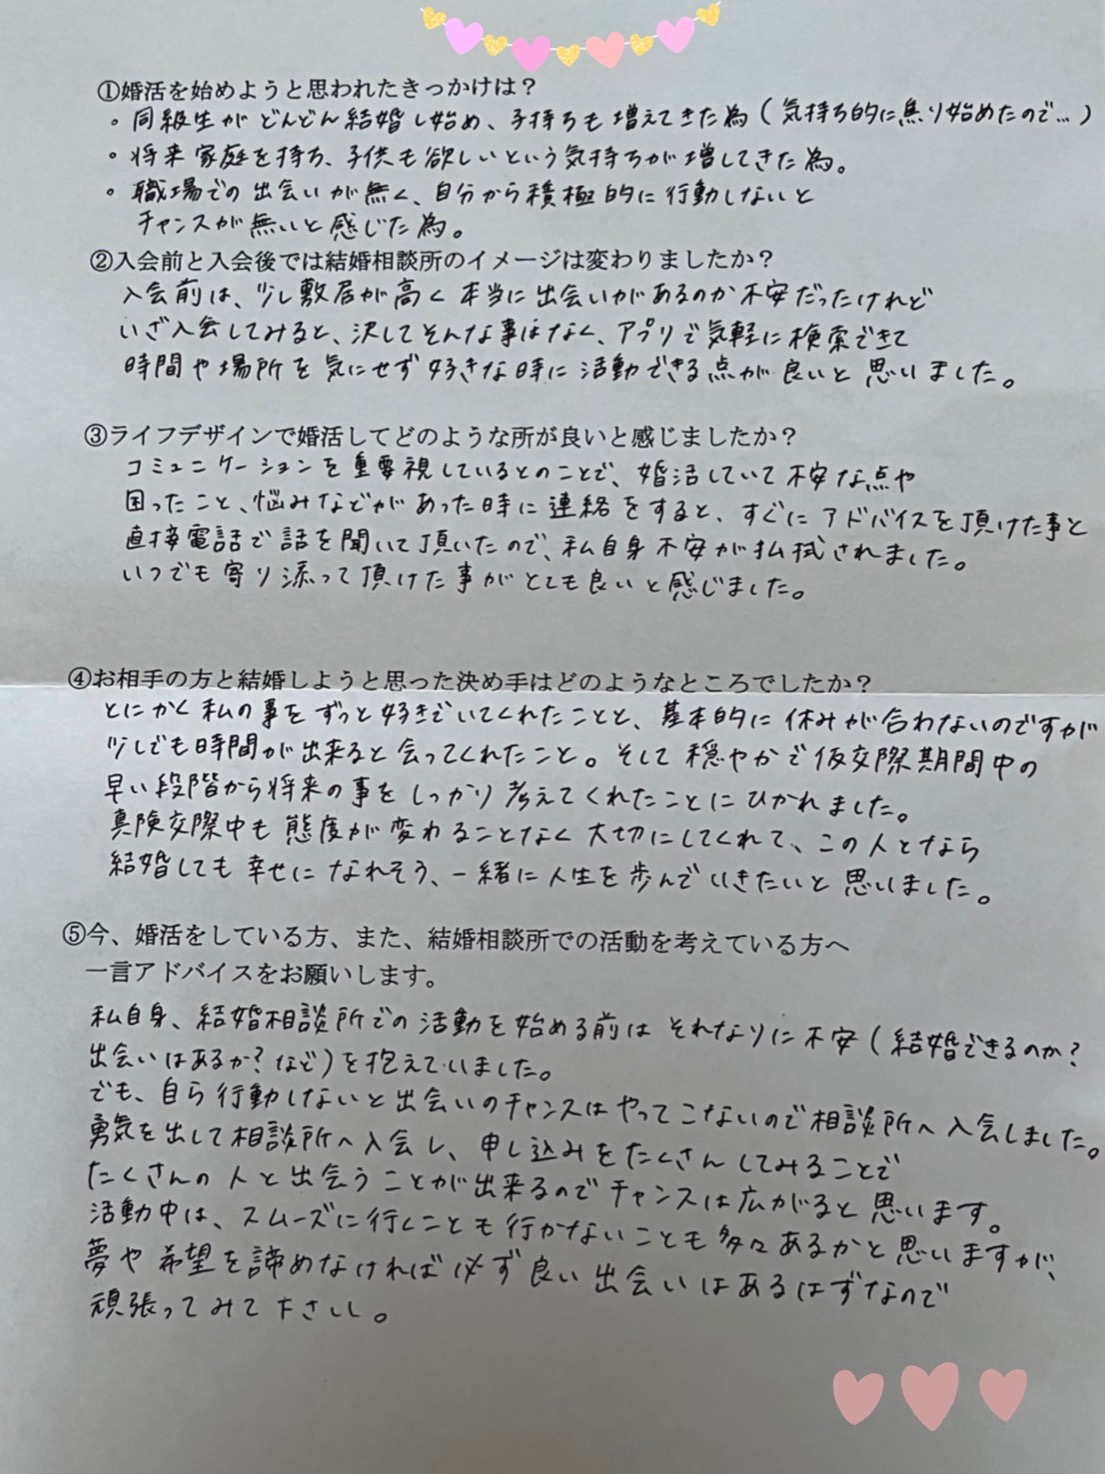 ①婚活を始めようと思われたきっかけは？
。同級生がどんどん結婚し始め、子持ちも増えてきた為(気持ち的に焦り始めたので…)
。将来家庭を持ち、子供も欲しいという気持ちが増してきた為。
。職場での出会いが無く、自分から積極的に行動しないと
チャンスが無いと感じた為。
②入会前と入会後では結婚相談所のイメージは変わりましたか？
入会前は、少し敷居が高く本当に出会いがあるのか不安だったけれど
いざ入会してみると、決してそんな事はなく、アプリで気軽に検索できて
時間や場所を気にせず好きな時に活動できる点が良いと思いました。
③ライフデザインで婚活してどのような所が良いと感じましたか？
コミュニケーションを重要視しているとのことで、婚活していて不安な点や
困ったこと、悩みなどがあった時に連絡をすると、すぐにアドバイスを頂けた事と
直接電話で話を聞いて頂いたので、私自身不安が払拭されました。
いつでも寄り添って頂けた事がとても良いと感じました。
④お相手の方と結婚しようと思った決め手はどのようなところでしたか？
とにかく私の事をずっと好きでいてくれたことと、基本的に休みが合わないのですが
少しでも時間が出来ると会ってくれたこと。そして穏やかで仮交際期間中の
早い段階から将来の事をしっかり考えてくれたことにひかれました。
真険交際中も態度が変わることなく大切にしてくれて、この人となら
結婚しても幸せになれそう、一緒に人生を歩んでいきたいと思いました。
⑤今、婚活をしている方、また、結婚相談所での活動を考えている方へ
一言アドバイスをお願いします。
私自身、結婚相談所での活動を始める前はそれなりに不安(結婚できるのか？
出会いはあるか？など)を抱えていました。
でも、自ら行動しないと出会いのチャンスはやってこないので相談所へ入会しました。
勇気を出して相談所へ入会し、申し込みをたくさんしてみることで
たくさんの人と出会うことが出来るのでチャンスは広がると思います。
活動中は、スムーズに行くことも行かないことも多々あるかと思いますが、
夢や希望を諦めなければ必ず良い出会いはあるはずなので
頑張ってみて下さいし。